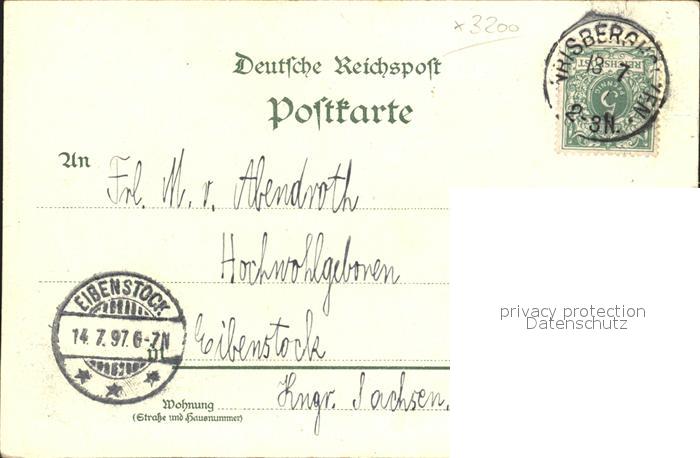 x 3200
Deutsche Reichspost
Postkarte
18 7
2-3N.
REICHSPOST
5
PFENNIG
An
Frl. M. v. Abendroth
Hochwohlgeboren
EIBENSTOCK
14.7.97.6-7N
in Eibenstock
Kngr. Sachsen.
Wohnung
(Straße und Hausnummer)
privacy protection
Datenschutz